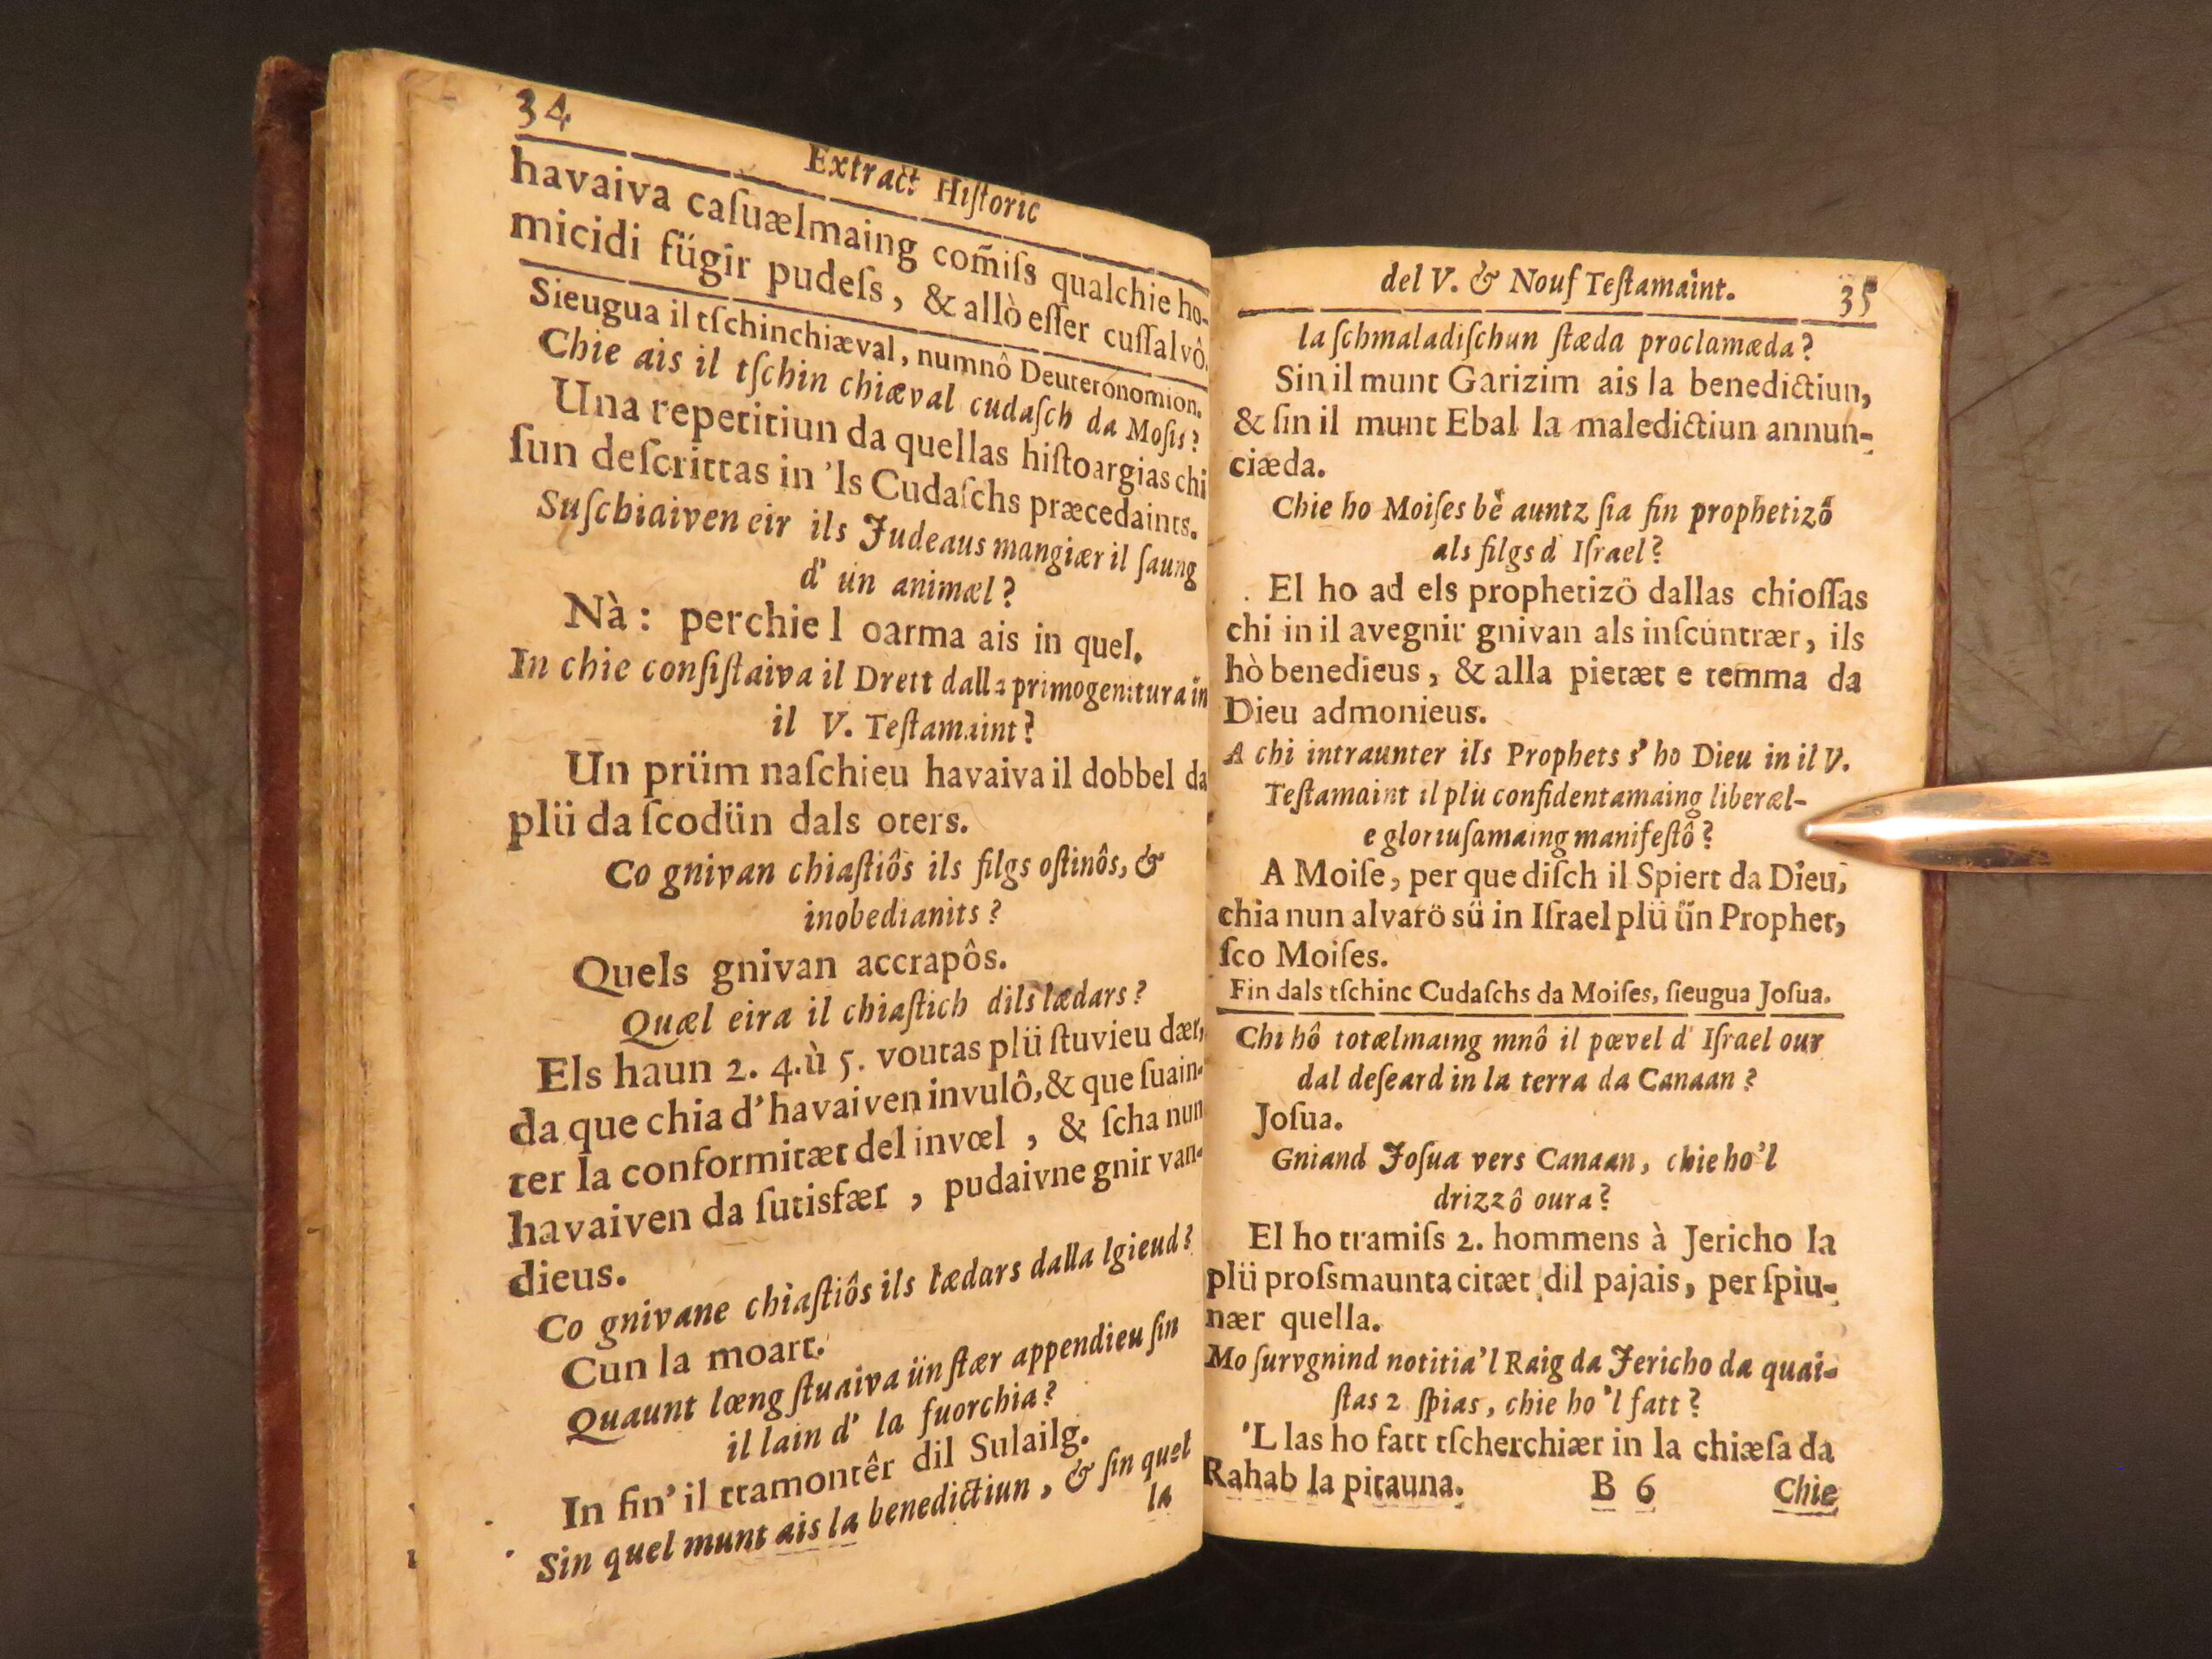 34
Extract Hiſtoric
havaiva caſuælmaing com̃iſs qualchie ho-
micidi fügîr pudeſs, & allò eſſer cuſſalvô.
Sieugua il tſchinchiæval, numnô Deuteronomion.
Chie ais il tſchin chiæval cudaſch da Moſis?
Una repetitiun da quellas hiſtoargias chi
ſun deſcrittas in 'ls Cudaſchs præcedaints.
Suſchiaiven eir ils Judeaus mangiær il ſaung
d' ün animæl?
Nà: perchie l oarma ais in quel.
In chie conſiſtaiva il Drett dalla primogenitura in
il V. Teſtamaint?
Ün prüm naſchieu havaiva il dobbel da
plü da ſcodün dals oters.
Co gnivan chiaſtiôs ils filgs oſtinôs, &
inobedianits?
Quels gnivan accrapôs.
Quæl eira il chiaſtich dils lædars?
Els haun 2. 4. ù 5. voutas plü ſtuvieu dær,
da que chia d'havaiven invulô, & que ſuain-
ter la conformitæt del invœl, & ſcha nun
havaiven da ſutisfær, pudaivne gnir van-
dieus.
Co gnivane chiaſtiôs ils lædars dalla lgieud?
Cun la moart.
Quaunt lœng ſtuaiva ün ſtær appendieu ſin
il lain d' la fuorchia?
In fin' il tramontêr dil Sulailg.
Sin quel munt ais la benedictiun, & ſin quel
la
del V. & Nouf Teſtamaint. 35
la ſchmaladiſchun ſtæda proclamæda?
Sin il munt Garizim ais la benedictiun,
& ſin il munt Ebal la maledictiun annun-
ciæda.
Chie ho Moiſes bè auntz ſia fin prophetizô
als filgs d' Iſrael?
El ho ad els prophetizô dallas chioſſas
chi in il avegnir gnivan als inſcuntrær, ils
hò benedieus, & alla pietæt e temma da
Dieu admonieus.
A chi intraunter ils Prophets s' ho Dieu in il V.
Teſtamaint il plü confidentamaing liberæl-
e gloriuſamaing manifeſtô?
A Moiſe, per que diſch il Spiert da Dieu,
chia nun alvarô sü in Iſrael plü ün Prophet,
ſco Moiſes.
Fin dals tſchinc Cudaſchs da Moiſes, ſieugua Joſua.
Chi hô totælmaing mnô il pœvel d' Iſrael our
dal deſeard in la terra da Canaan?
Joſua.
Gniand Joſua vers Canaan, chie ho'l
drizzô oura?
El ho tramiſs 2. hommens à Jericho la
plü proſsmaunta citæt dil pajais, per ſpiu-
nær quella.
Mo ſurvgnind notitia'l Raig da Jericho da quai-
ſtas 2 ſpias, chie ho 'l fatt?
'L las ho fatt tſcherchiær in la chiæſa da
Rahab la pitauna. B 6 Chie